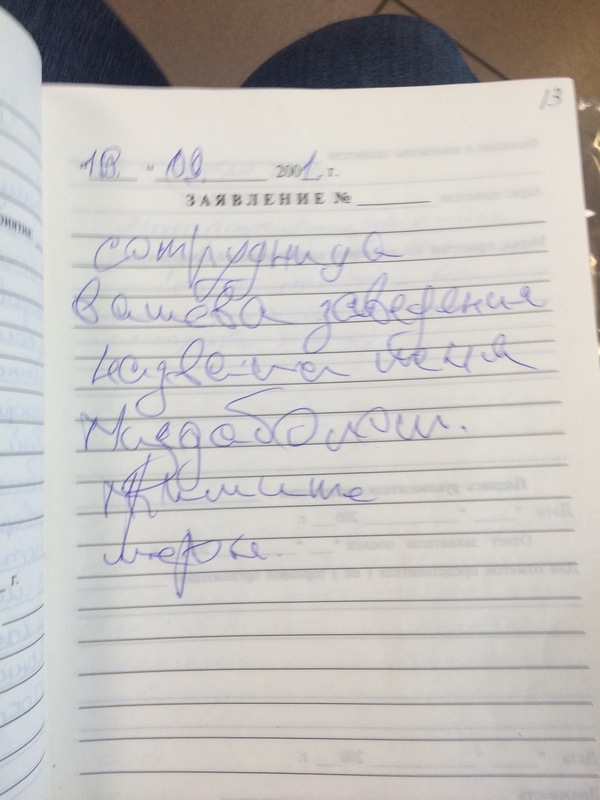 13
"18." 09. 2001, г.
ЗАЯВЛЕНИЕ №
сотрудница
вашева заведения
назвала меня
Мандаболом.
Примите
меры.
г.